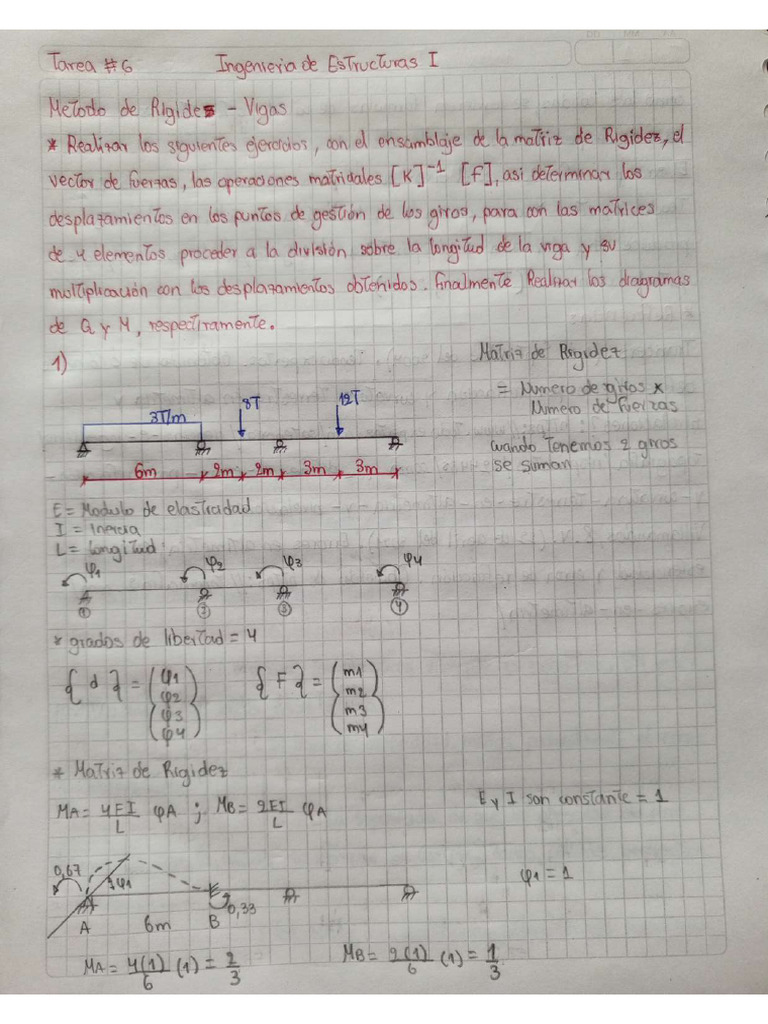 Tarea #6 Ingenieria de Estructuras I
Metodo de Rigides - Vigas
* Realizar los siguientes ejercicios, con el ensamblaje de la matriz de Rigidez, el
vector de fuerzas, las operaciones matriciales [K]⁻¹ [F], asi determinar los
desplazamientos en los puntos de gestión de los giros, para con las matrices
de 4 elementos proceder a la división sobre la longitud de la viga y su
multiplicación con los desplazamientos obtenidos. Finalmente Realizar los diagramas
de Q y M, respectivamente.
1)
Matriz de Rigidez
= Numero de giros x
Numero de fuerzas
cuando tenemos 2 giros
se suman
3T/m 8T 12T
6m 2m 2m 3m 3m
E = Modulo de elasticidad
I = inercia
L = longitud
φ1 φ2 φ3 φ4
1 2 3 4
* grados de libertad = 4
{d} = (φ1 φ2 φ3 φ4) {F} = (m1 m2 m3 m4)
* Matriz de Rigidez
MA = 4EI/L φA ; MB = 2EI/L φA
E y I son constante = 1
0,67 φ1 0,33
φ1 = 1
A 6m B
MA = 4(1)/6 (1) = 2/3 MB = 2(1)/6 (1) = 1/3